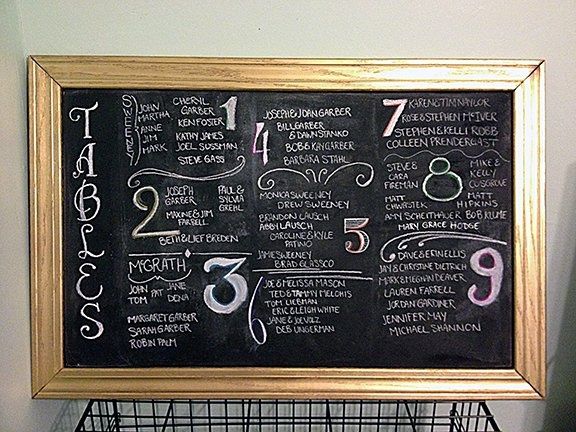 TABLES
SWEENEY
JOHN
MARTHA
ANNE
JIM
MARK
CHERYL
GARBER
KEN FOSTER
KATHY JAMES
JOEL SUSSMAN
STEVE GASS
1
2
JOSEPH
GARBER
PAUL &
SYLVIA
GREHL
MAXINE & JIM
FARRELL
BETH & LIEF BREDEN
MCGRATH
JOHN PAT JANE
TOM DENA
3
MARGARET GARBER
SARAH GARBER
ROBIN PALM
4
JOSEPH & JOAN GARBER
BILL GARBER
& DAWN STANKO
BOB & KAY GARBER
BARBARA STAHL
MONICA SWEENEY
DREW SWEENEY
BRANDON LAUSCH
ABBY LAUSCH
CAROLINE & KYLE
PATINO
JAMIE SWEENEY
BRAD GLASSCO
5
6
JOE & MELISSA MASON
TED & TAMMY MELOHIS
TOM LIEBMAN
ERIC & LEIGH WHITE
JANE & JOE VOLZ
DEB UNGERMAN
7
KAREN & TIM NAYLOR
ROSE & STEPHEN MCIVER
STEPHEN & KELLI ROBB
COLLEEN PRENDERGAST
STEVE &
CARA
FIREMAN
MATT
CHWASTEK
8
MIKE &
KELLY
COSGROVE
MATT
HIPKINS
AMY SCHEITHAUER BOB KLUME
MARY GRACE HODGE
9
DAVE & ERIN ELLIS
JAY & CHRISTINE DIETRICH
MARK & MEGHAN DEAVER
LAUREN FARRELL
JORDAN GARDINER
JENNIFER MAY
MICHAEL SHANNON